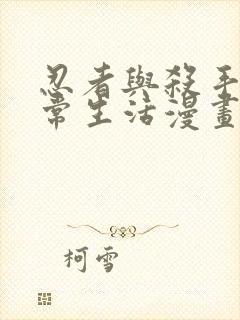 忍者與殺手
常生活漫畫
柯雪